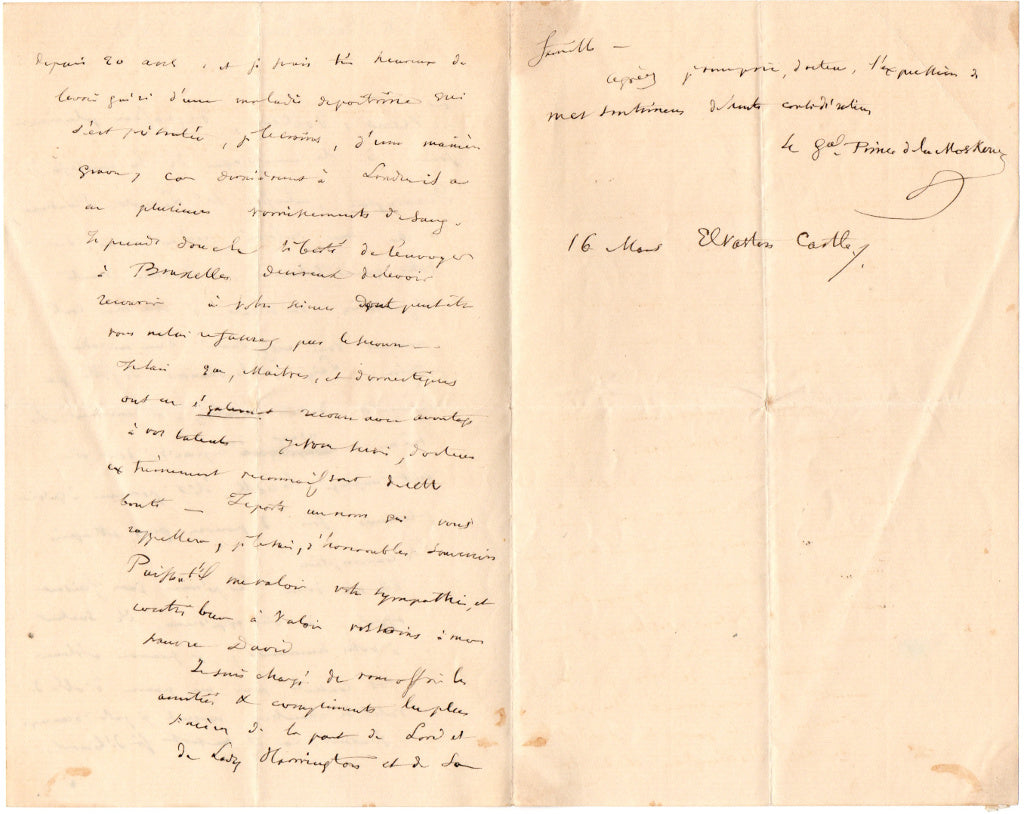 depuis 20 ans, et je serais très heureux de
le voir guéri d'une maladie de poitrine qui
s'est présentée, je le crains, d'une manière
grave, car dernièrement à Londres il a
eu plusieurs vomissements de sang.
Je prends donc la liberté de l'envoyer
à Bruxelles désireux de le voir
recourir à votre science dont peut être
vous ne lui refuserez pas le secours —
Je sais que, Maîtres, et domestiques
ont eu également recours avec avantage
à vos talents je vous serai, docteur
extrêmement reconnaissant de cette
bonté — Je porte un nom qui vous
rappellera, je le sais, d'honorables souvenirs
Puisse t'il me valoir votre sympathie, et
bien à valoir vos soins à mon
pauvre David
Je suis chargé de vous offrir les
amitiés & compliments les plus
de la part de Lord et
de Lady Harrington et de Sa
famille —
agréez je vous prie, docteur, l'expression de
mes sentimens de haute considération
Le gal Prince de la Moskowa
16 Mars Elvaston Castle